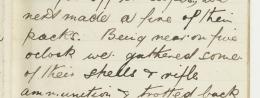 next made a fire of their
packs. Being near on five
oclock we gathered some
of their shells & rifle
ammunition & trotted back